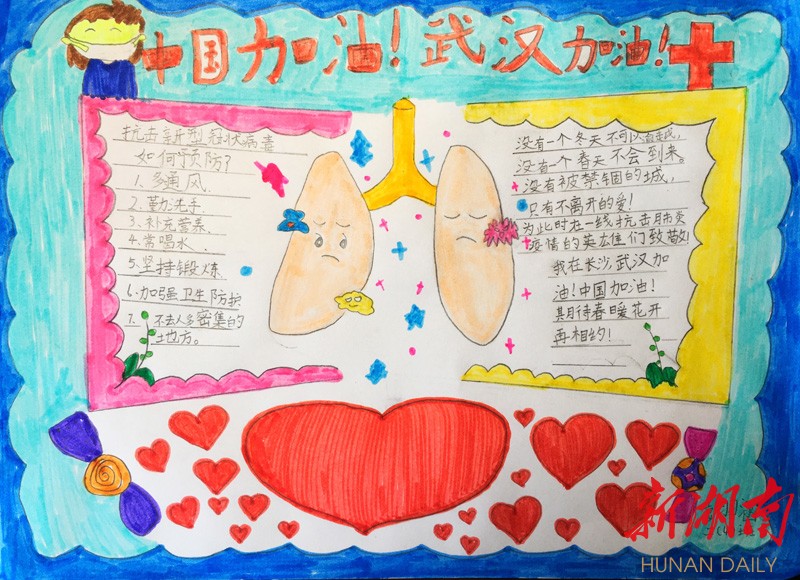 中国加油!武汉加油!
抗击新型冠状病毒
如何预防?
1、多通风.
2、勤洗手.
3、补充营养.
4、常喝水.
5、坚持锻炼
6、加强卫生防护
7. 不去人多密集的
地方。
没有一个冬天不可以逾越,
没有一个春天不会到来。
没有被禁锢的城,
只有不离开的爱!
为此时在一线抗击肺炎
疫情的英雄们致敬!
我在长沙,武汉加
油!中国加油!
期待春暖花开
再相约!
新湖南
HUNAN DAILY